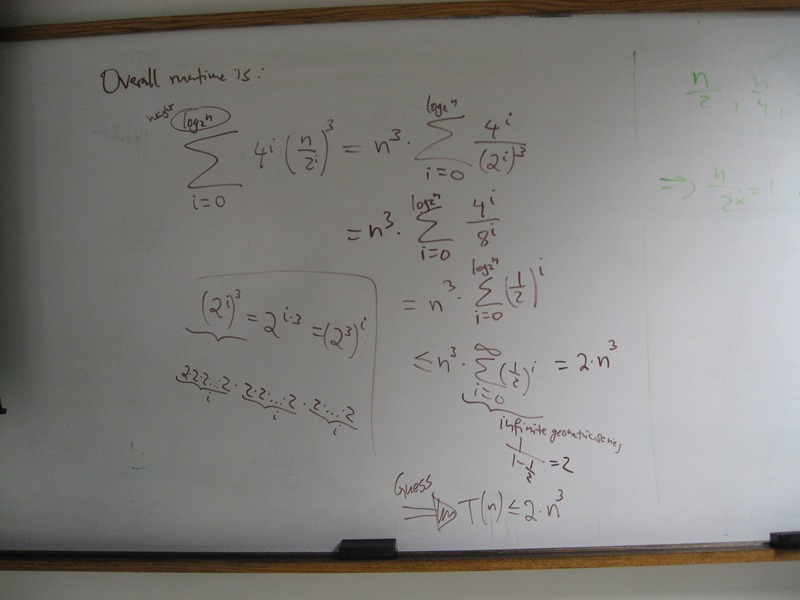 Overall runtime is:
height log₂n
∑ i=0 4^i (n/2^i)^3 = n^3 · ∑ i=0 log₂n 4^i/(2^i)^3
= n^3 · ∑ i=0 log₂n 4^i/8^i
= n^3 · ∑ i=0 log₂n (1/2)^i
≤ n^3 · ∑ i=0 ∞ (1/2)^i = 2·n^3
infinite geometric series,
1/(1-1/2) = 2
Guess ⇒ T(n) ≤ 2·n^3
(2^i)^3 = 2^{i·3} = (2^3)^i
2·2·2...·2 · 2·2·...·2 · 2·...·2
i i i
n/2 , n/4 ,
⇒ n/2x = 1